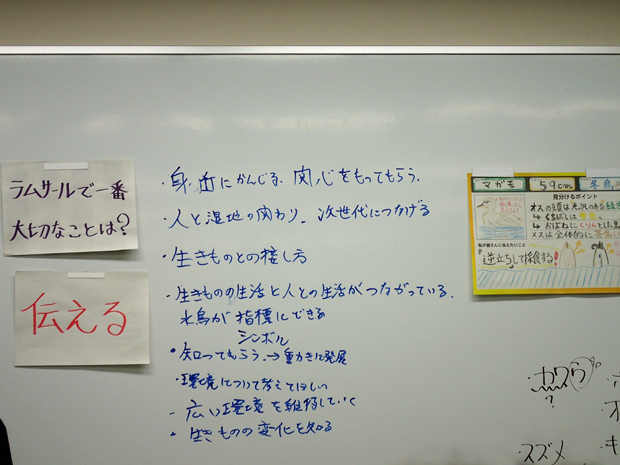 ラムサールで一番
大切なことは?
伝える
・身近にかんじる、関心をもってもらう。
・人と湿地の関わり、次世代につなげる
・生きものとの接し方
・生きものの生活と人との生活がつながっている。
水鳥が指標にできる
シンボル
・知ってもらう。→動きに発展
・環境について考えてほしい
・広い環境を維持していく
・生きものの変化を知る
マガモ 59cm 冬鳥
見分けるポイント
オスの頭は光沢のある緑
↳くちばしは黄色
↳おばねにくりんとした黒
メスは全体的に茶
私が皆さんに伝えたいこと
逆立ちして採食する!
・カワウ
?
・スズメ